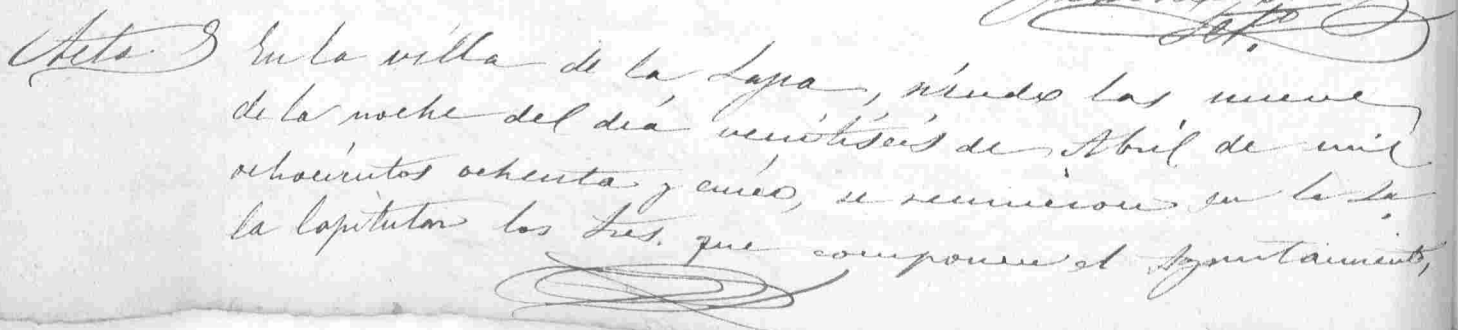 Acta En la villa de la Lapa, siendo las nueve
de la noche del dia veintiseis de Abril de mil
ochocientos ochenta y cinco, se reunieron en la Sa
la Capitular los Sres. que componen el Ayuntamiento,